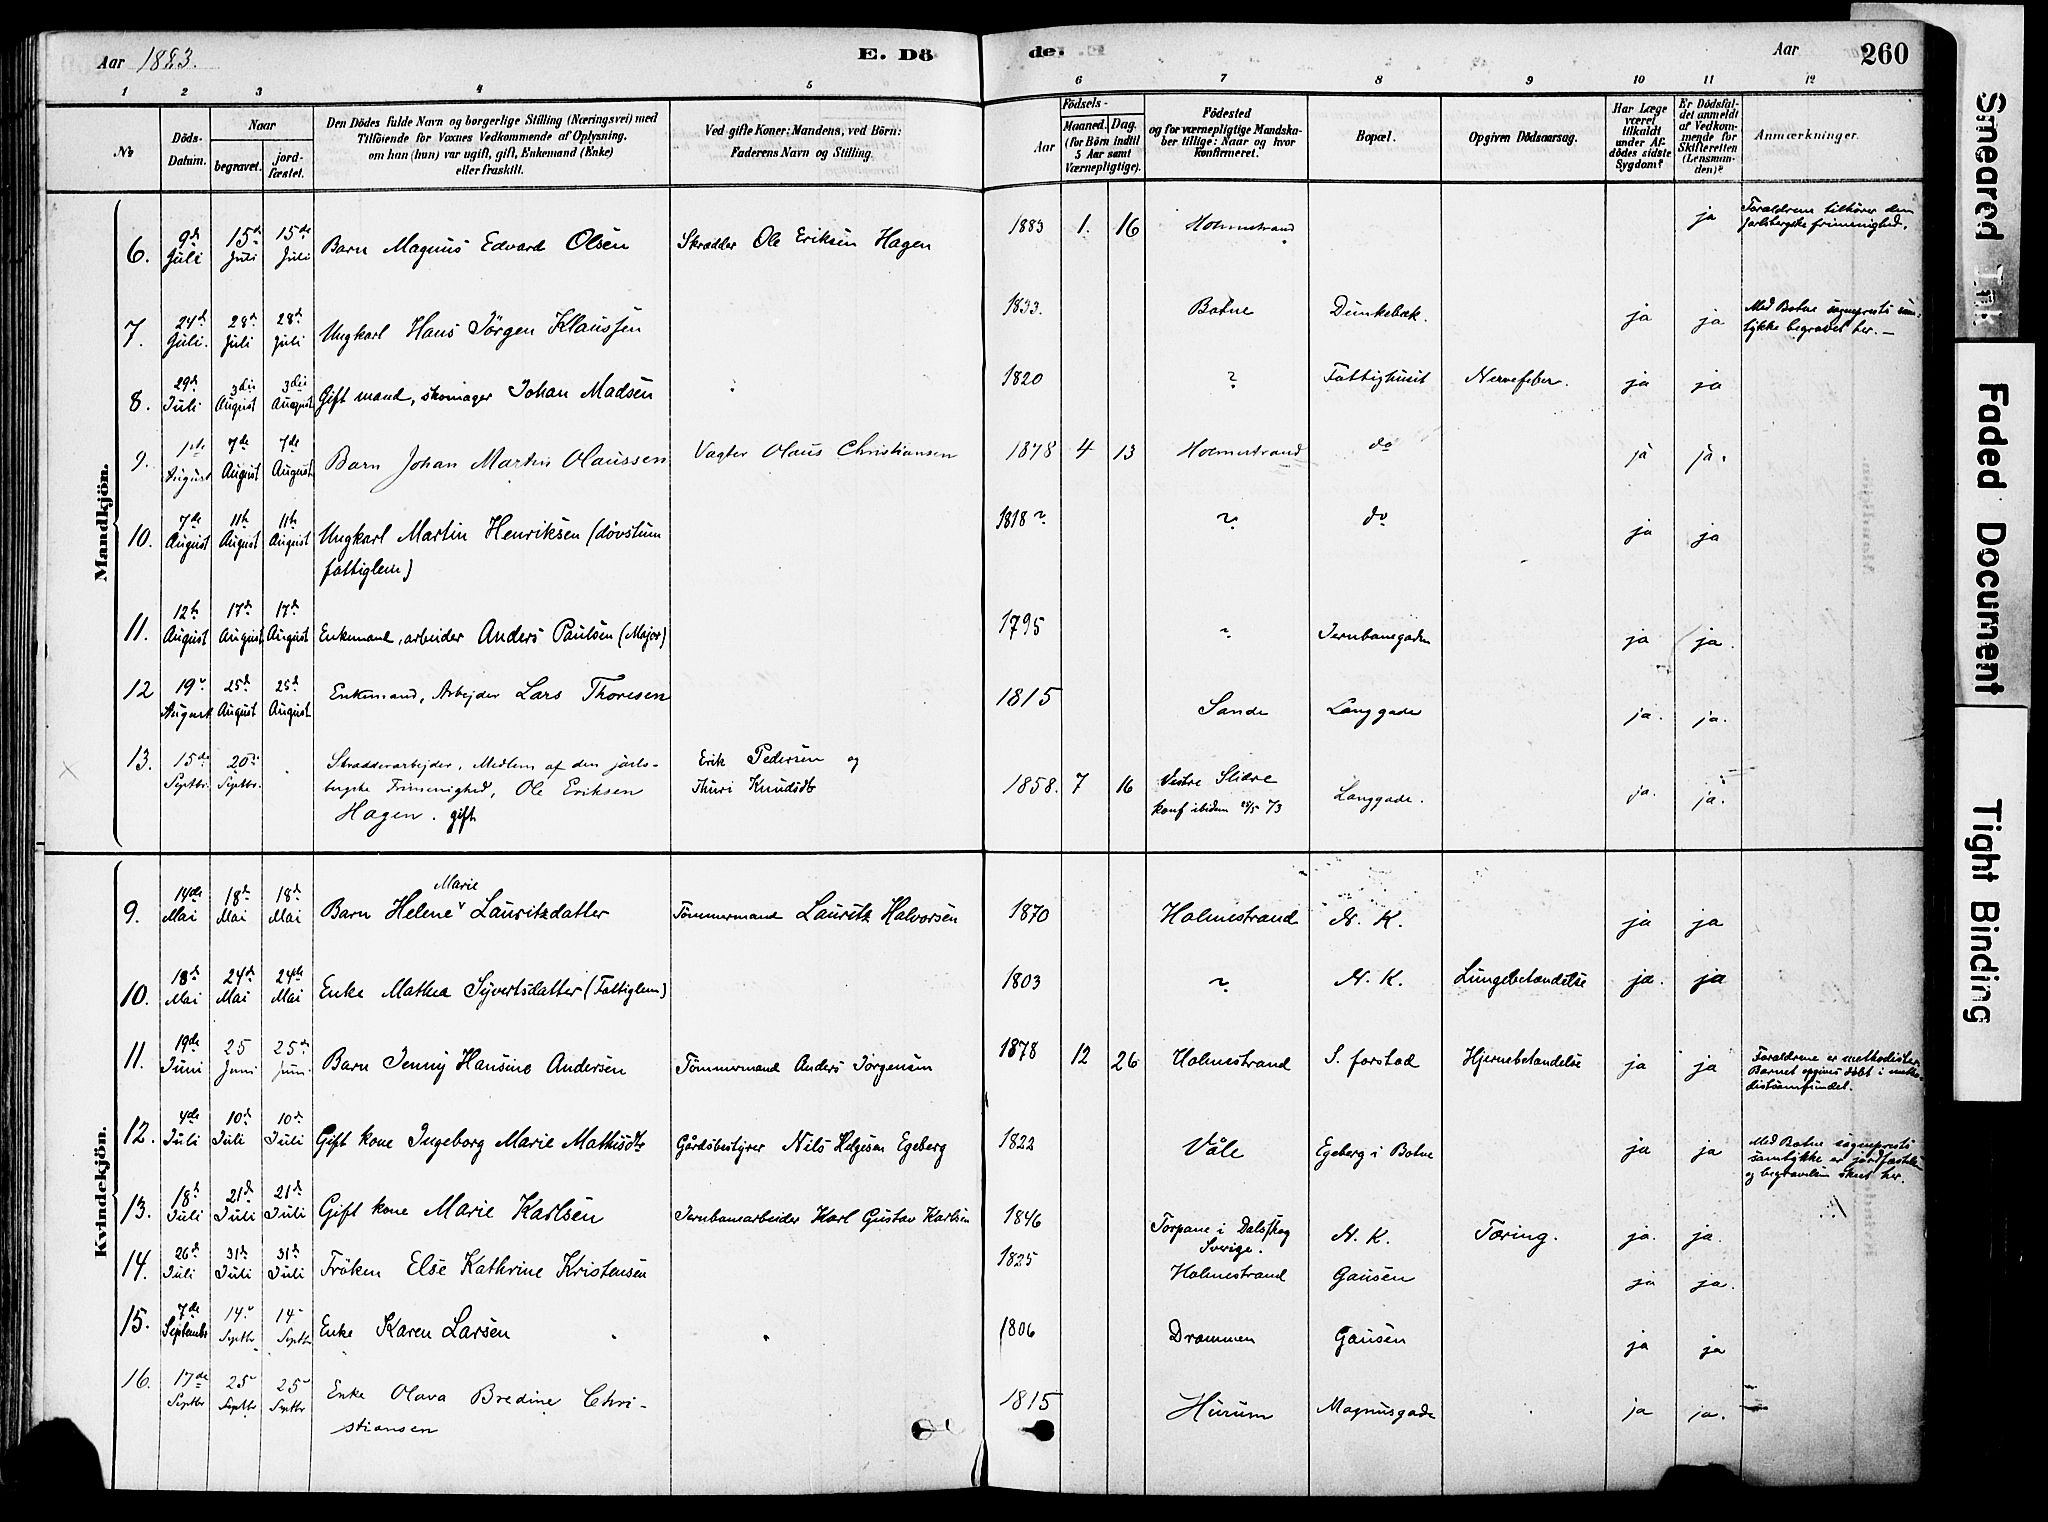 Aar 1883. E. Dö de. Aar 260
1 2 3 4 5 6 7 8 9 10 11 12
No
Döds-Datum.
Naar
begravet.
jord-fæstet.
Den Dödes fulde Navn og borgerlige Stilling (Næringsvei) med
Tilföiende for Voxnes Vedkommende af Oplysning.
om han (hun) var ugift, gift, Enkemand (Enke)
eller fraskilt.
Ved gifte Koner: Mandens, ved Börn:
Faderens Navn og Stilling.
Födsels-
Aar
Maaned. Dag.
(for Börn indtil
5 Aar samt
Værnepligtige).
Födested
og for værnepligtige Mandska-
ber tillige: Naar og hvor
konfirmeret.
Bopæl.
Opgiven Dödsaarsag.
Har Læge
været
tilkaldt
under Af-
dödes sidste
Sygdom?
Er Dödsfal-
det anmeldt
af Vedkom-
mende for
Skifteretten
(Lensman-
den)?
Anmærkninger.
Mandkjön.
6. 9d Juli 15d Juli 15de Juli Barn Magnus Edvard Olsen Skrædder Ole Eriksen Hagen 1883 1. 16 Holmestrand ja Forældrene tilhører den
jarlsbergske frimenighed.
7. 24d Juli. 28d Juli 28d Juli Ungkarl Hans Jörgen Klaussen 1833. Botne Dunkebæk. ja ja Med Botne sogneprests sam-
tykke begravet her. —
8. 29d Juli 3die August 3die August Gift mand, skomager Johan Madsen 1820 ? Fattighuset Nervefeber. ja ja
9. 1ste August 7de August 7de August Barn Johan Martin Olaussen Vagter Olaus Christiansen 1878 4 13 Holmestrand do ja ja.
10. 7de August 11te August 11te August Ungkarl Martin Henriksen (døvstum
fattiglem) 1818 ? ? do ja ja
11. 12te August 17d August 17d August Enkemand, arbeider Anders Paulsen (Major) 1795 ? Jernbanegaden ja ja.
12 19 August 25d August 25d August Enkemand, Arbejder Lars Thoresen 1815 Sande Langgade ja. ja.
13. 15de Septbr. 20de Septbr. Skrædderarbejder, Medlem af den jarls-
bergske Frimenighed, Ole Eriksen
Hagen. gift Erik Pedersen og
Thuri Knudsdtr 1858. 7 16 Vestre Slidre
konf ibidem 25/5 73 Langgade. ja. ja.
Kvindekjön.
9. 14de Mai 18d Mai 18d Mai Barn Helene Marie Lauritzdatter Tömmermand Lauritz Halvorsen 1870 Holmestrand N. K. ja ja
10. 18d Mai 24d Mai 24de Mai Enke Mathea Syvertsdatter (Fattiglem) 1803 ? N. K. Lungebetændelse ja. ja
11. 19de Juni 25 Juni 25de Juni. Barn Jenny Hansine Andersen Tömmermand Anders Jörgensen 1878 12 26 Holmestrand S. forstad Hjernebetændelse ja ja Forældrene er methodister
Barnet opgives döbt i metho-
distsamfundet.
12. 4de Juli 10d Juli 10d Juli Gift kone Ingeborg Marie Mathisdtr Gårdsbestyrer Nils Helgesen Egeberg 1822 Våle Egeberg i Botne ja ja Med Botne sogneprests
samtykke er jordfæstelse
og begravelsen skeet her.
13. 18d Juli 21d Juli 21d Juli Gift kone Marie Karlsen Jernbanearbeider Karl Gustav Karlsen 1846 Torpane i Dalsskog
Sverige. N. K. Tæring. ja. ja.
14. 26d Juli 31d Juli 31d Juli Fröken Else Kathrine Kristensen 1825 Holmestrand Gausen ja ja.
15. 7de Septembr 14 Septbr 14 Septbr Enke Karen Larsen 1806 Drammen Gausen ja ja
16. 17de Septbr 25 Septbr 25 Septbr Enke Olava Bredine Chri-
stiansen 1815 Hurum Magnusgade ja ja.
Smeared Ink
Faded Document
Tight Binding